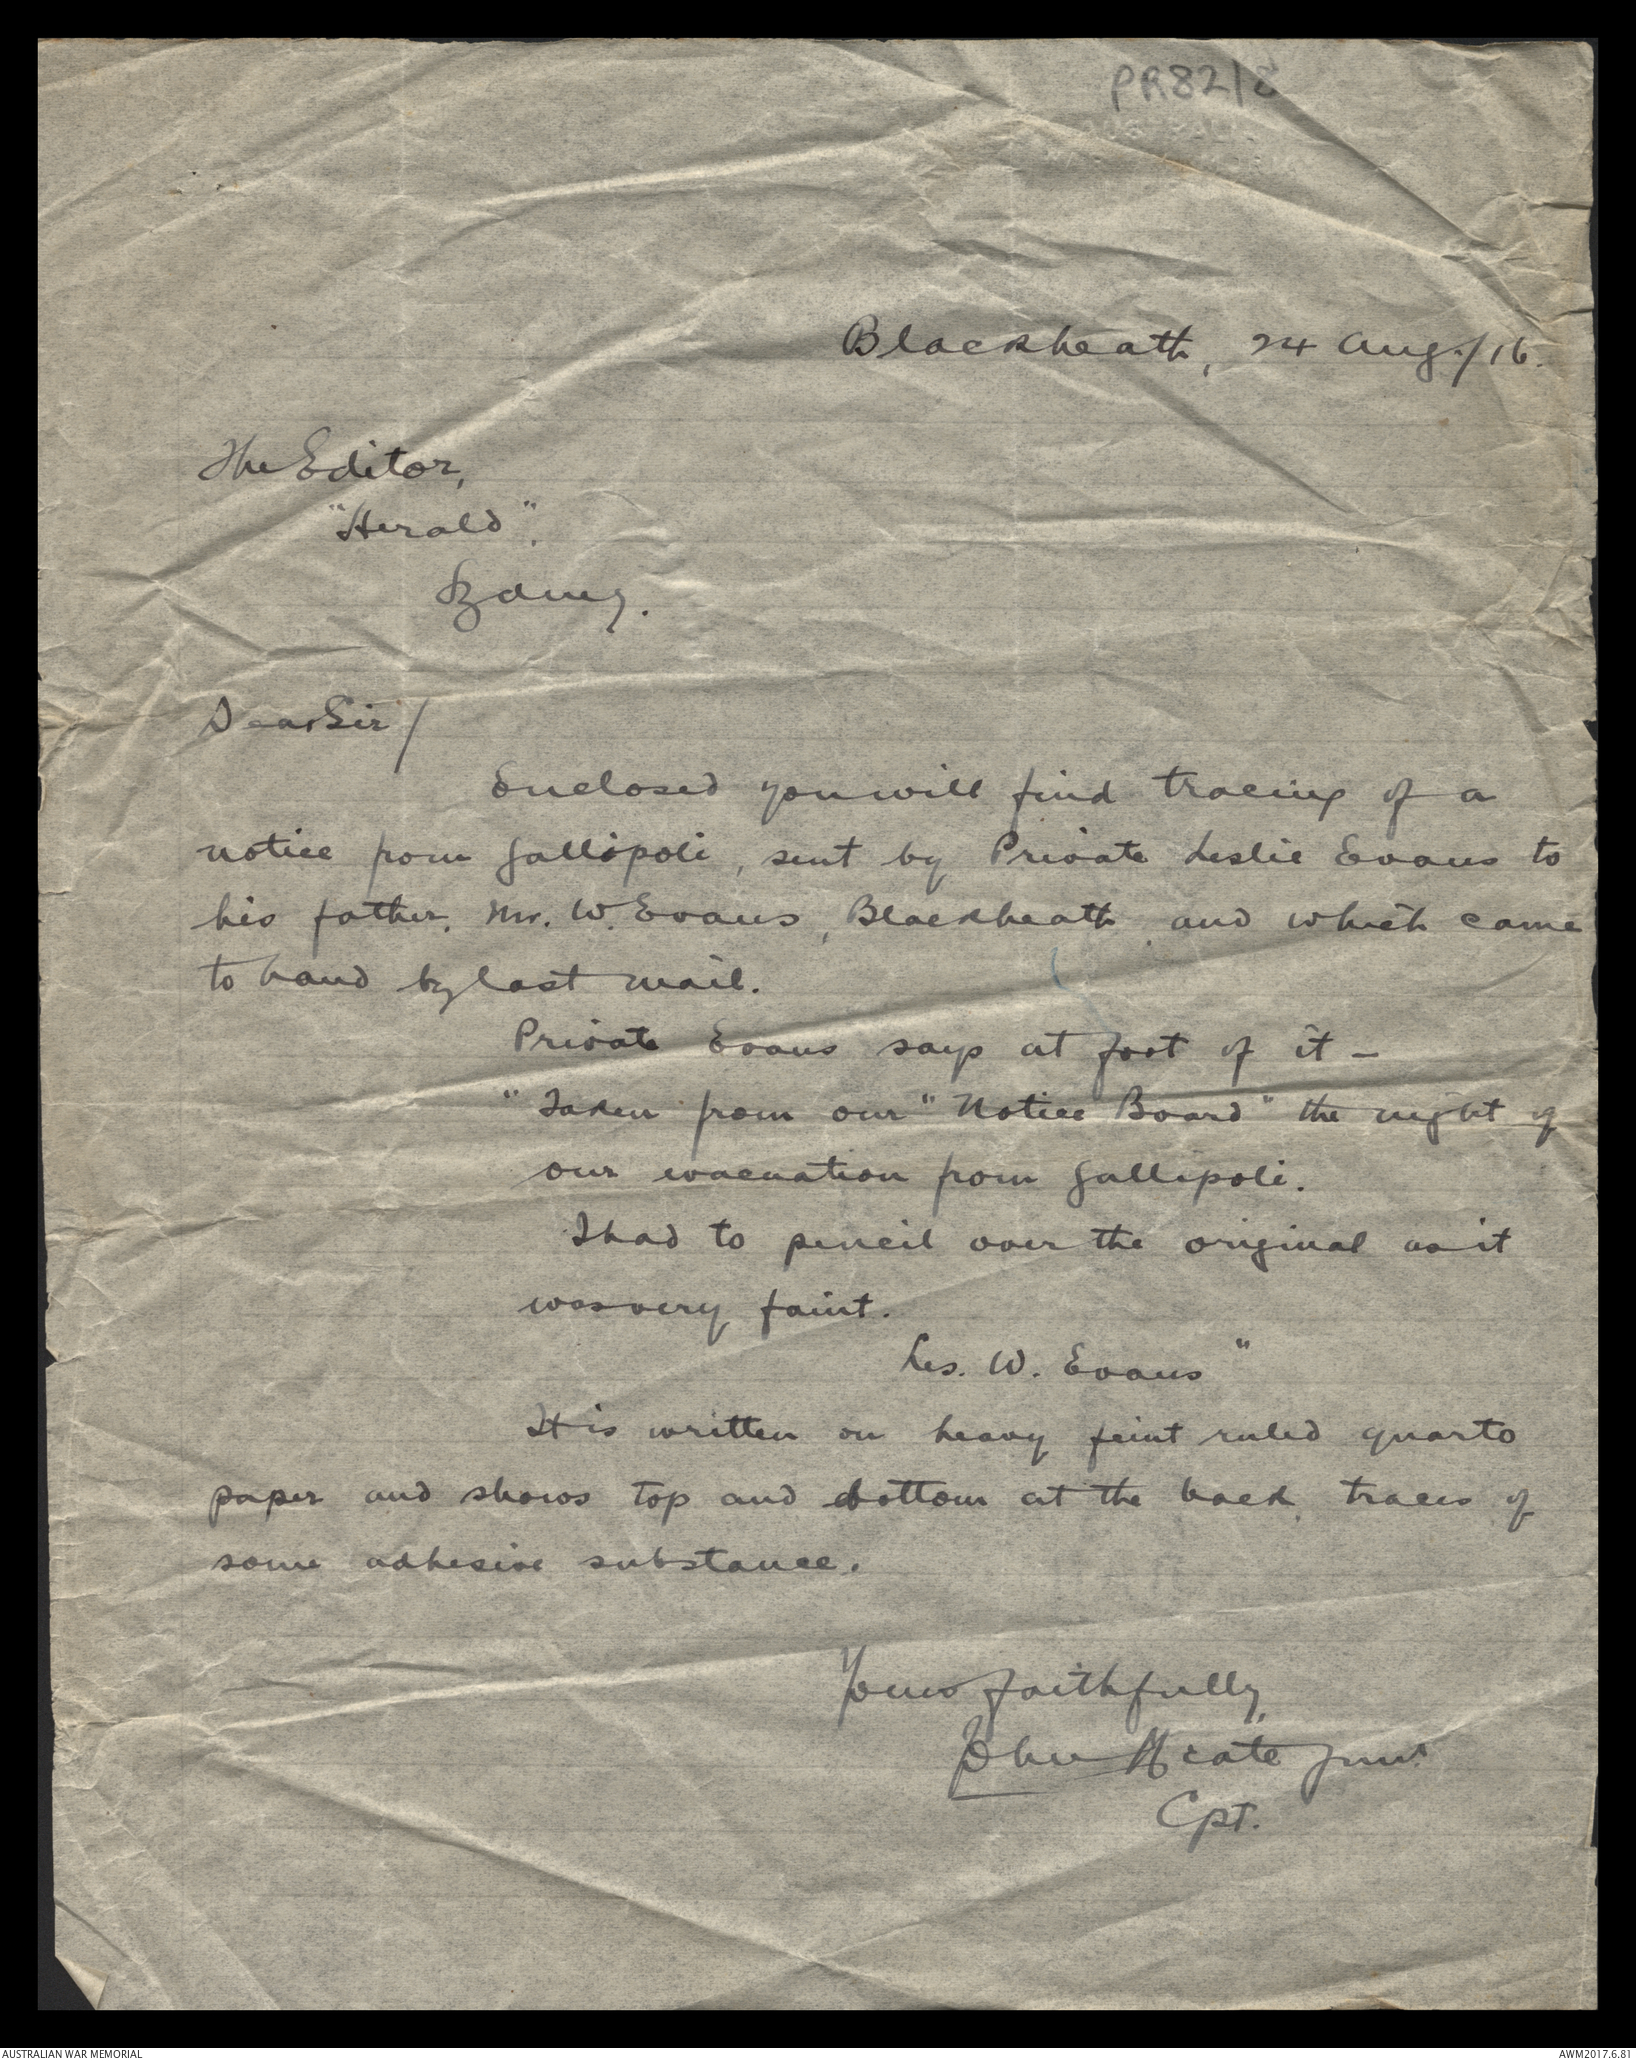 PR82/8
Blackheath, 24 Aug./16.
The Editor,
"Herald".
Sydney.
Dear Sir/
Enclosed you will find tracing of a
notice from Gallipoli, sent by Private Leslie Evans to
his father, Mr. W. Evans, Blackheath, and which came
to hand by last mail.
Private Evans says at foot of it –
"Taken from our "Notice Board" the night of
our evacuation from Gallipoli.
I had to pencil over the original as it
was very faint.
Les. W. Evans"
It is written on heavy feint ruled quarto
paper and shows top and bottom at the back, traces of
some adhesive substance.
Yours faithfully,
John Junr.
Cpt.
AUSTRALIAN WAR MEMORIAL
AWM2017.6.81